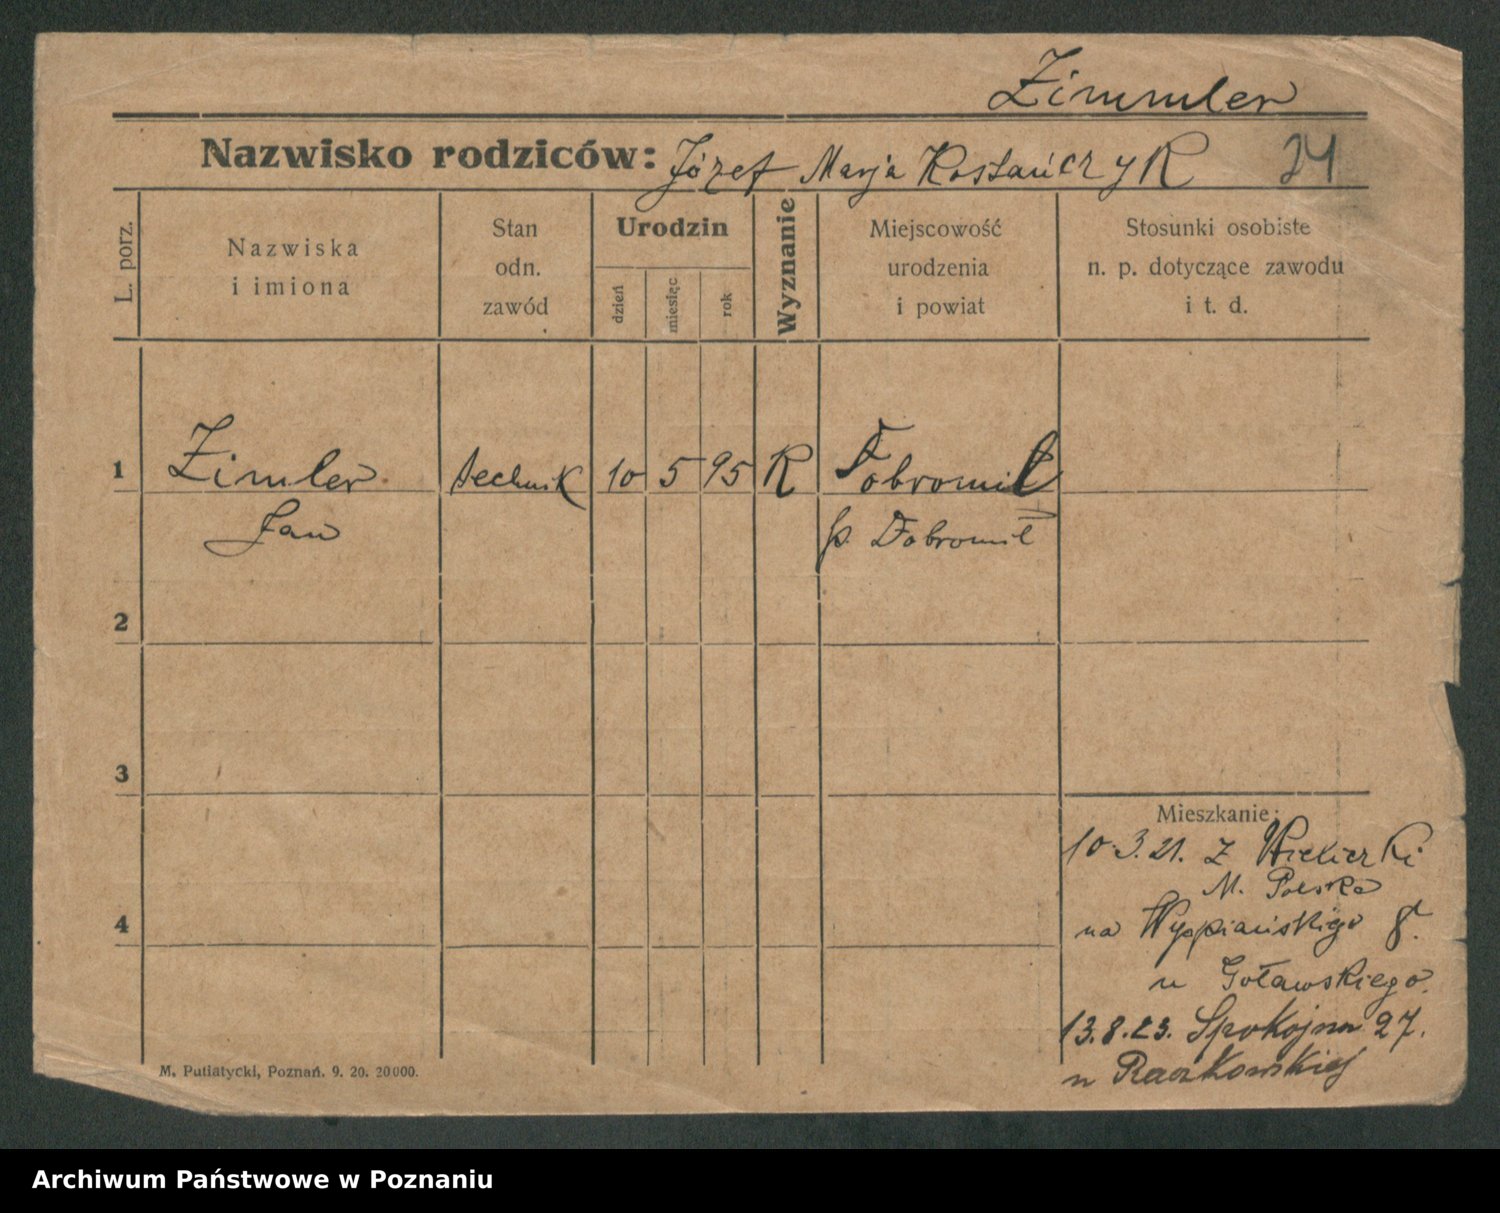 Zimmler
Nazwisko rodziców: Józef Marja Kostańczyk 24
L. porz.
Nazwiska
i imiona
Stan
odn.
zawód
Urodzin
dzień
miesięc
rok
Wyznanie
Miejscowość
urodzenia
i powiat
Stosunki osobiste
n. p. dotyczące zawodu
i t. d.
1 Zimler technik 10 5 95 R Dobromil
Jan p. Dobromil
2
3
Mieszkanie:
10.3.21. z Wiekierki
M. Polska
4
na Wyspiańskiego 8.
u Goławskiego.
13.8.23. Spokojna 27.
u Raczkowskiej
M. Putiatycki, Poznań. 9. 20. 20000.
Archiwum Państwowe w Poznaniu